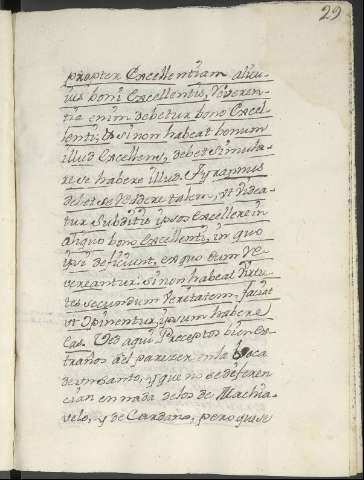 29
propter Excellentiam alicu-
ius boni Excellentis, Reveren-
tia enim debetur bono Excel-
lenti, & si non habeat bonum
illud Excellens, debet Simula-
re se habere illud. Tyrannus
debet se reddere talem, ut videa-
tur Subditis ipsos Excellere in
aliquo bono Excellenti, in quo
ipsi deficiunt, ex quo eum re-
vereantur: si non habeat virtu-
tes secundum Veritatem, faciat
ut Opinentur, ipsum habere
eas. Ved aqui Preceptos bien es-
traños al parezer en la boca
de un santo, y que no se diferen-
cian en nada de los de Machia-
velo, y de Cardano, pero que se